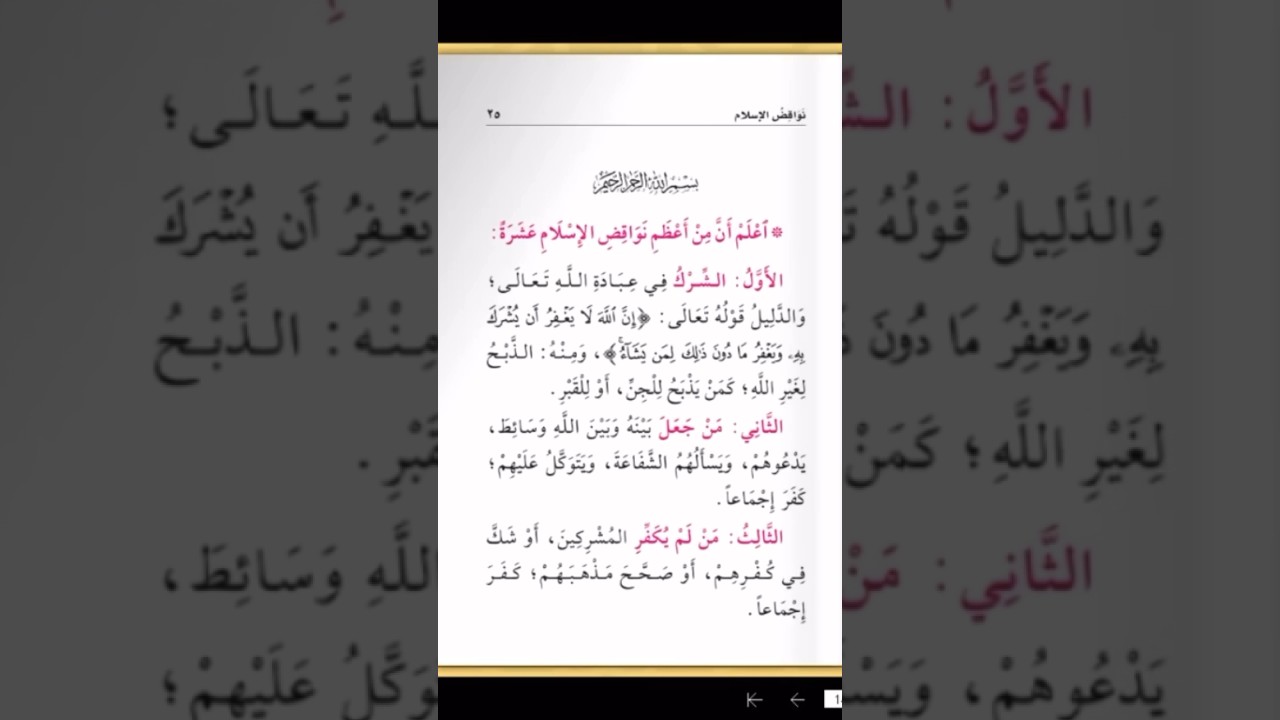 نَوَاقِضُ الإِسلام ٢٥
بِسْمِ اللَّهِ الرَّحْمَنِ الرَّحِيمِ
* ٱعْلَمْ أَنَّ مِنْ أَعْظَمِ نَوَاقِضِ الإِسْلَامِ عَشَرَةٌ:
الأَوَّلُ: الشِّرْكُ فِي عِبَادَةِ اللَّهِ تَعَالَى؛
وَالدَّلِيلُ قَوْلُهُ تَعَالَى: ﴿إِنَّ ٱللَّهَ لَا يَغْفِرُ أَن يُشْرَكَ
بِهِۦ وَيَغْفِرُ مَا دُونَ ذَٰلِكَ لِمَن يَشَآءُ﴾، وَمِنْهُ: الذَّبْحُ
لِغَيْرِ اللَّهِ؛ كَمَنْ يَذْبَحُ لِلْجِنِّ، أَوْ لِلْقَبْرِ.
الثَّانِي: مَنْ جَعَلَ بَيْنَهُ وَبَيْنَ اللَّهِ وَسَائِطَ،
يَدْعُوهُمْ، وَيَسْأَلُهُمُ الشَّفَاعَةَ، وَيَتَوَكَّلُ عَلَيْهِمْ؛
كَفَرَ إِجْمَاعاً.
الثَّالِثُ: مَنْ لَمْ يُكَفِّرِ المُشْرِكِينَ، أَوْ شَكَّ
فِي كُفْرِهِمْ، أَوْ صَحَّحَ مَذْهَبَهُمْ؛ كَفَرَ
إِجْمَاعاً.